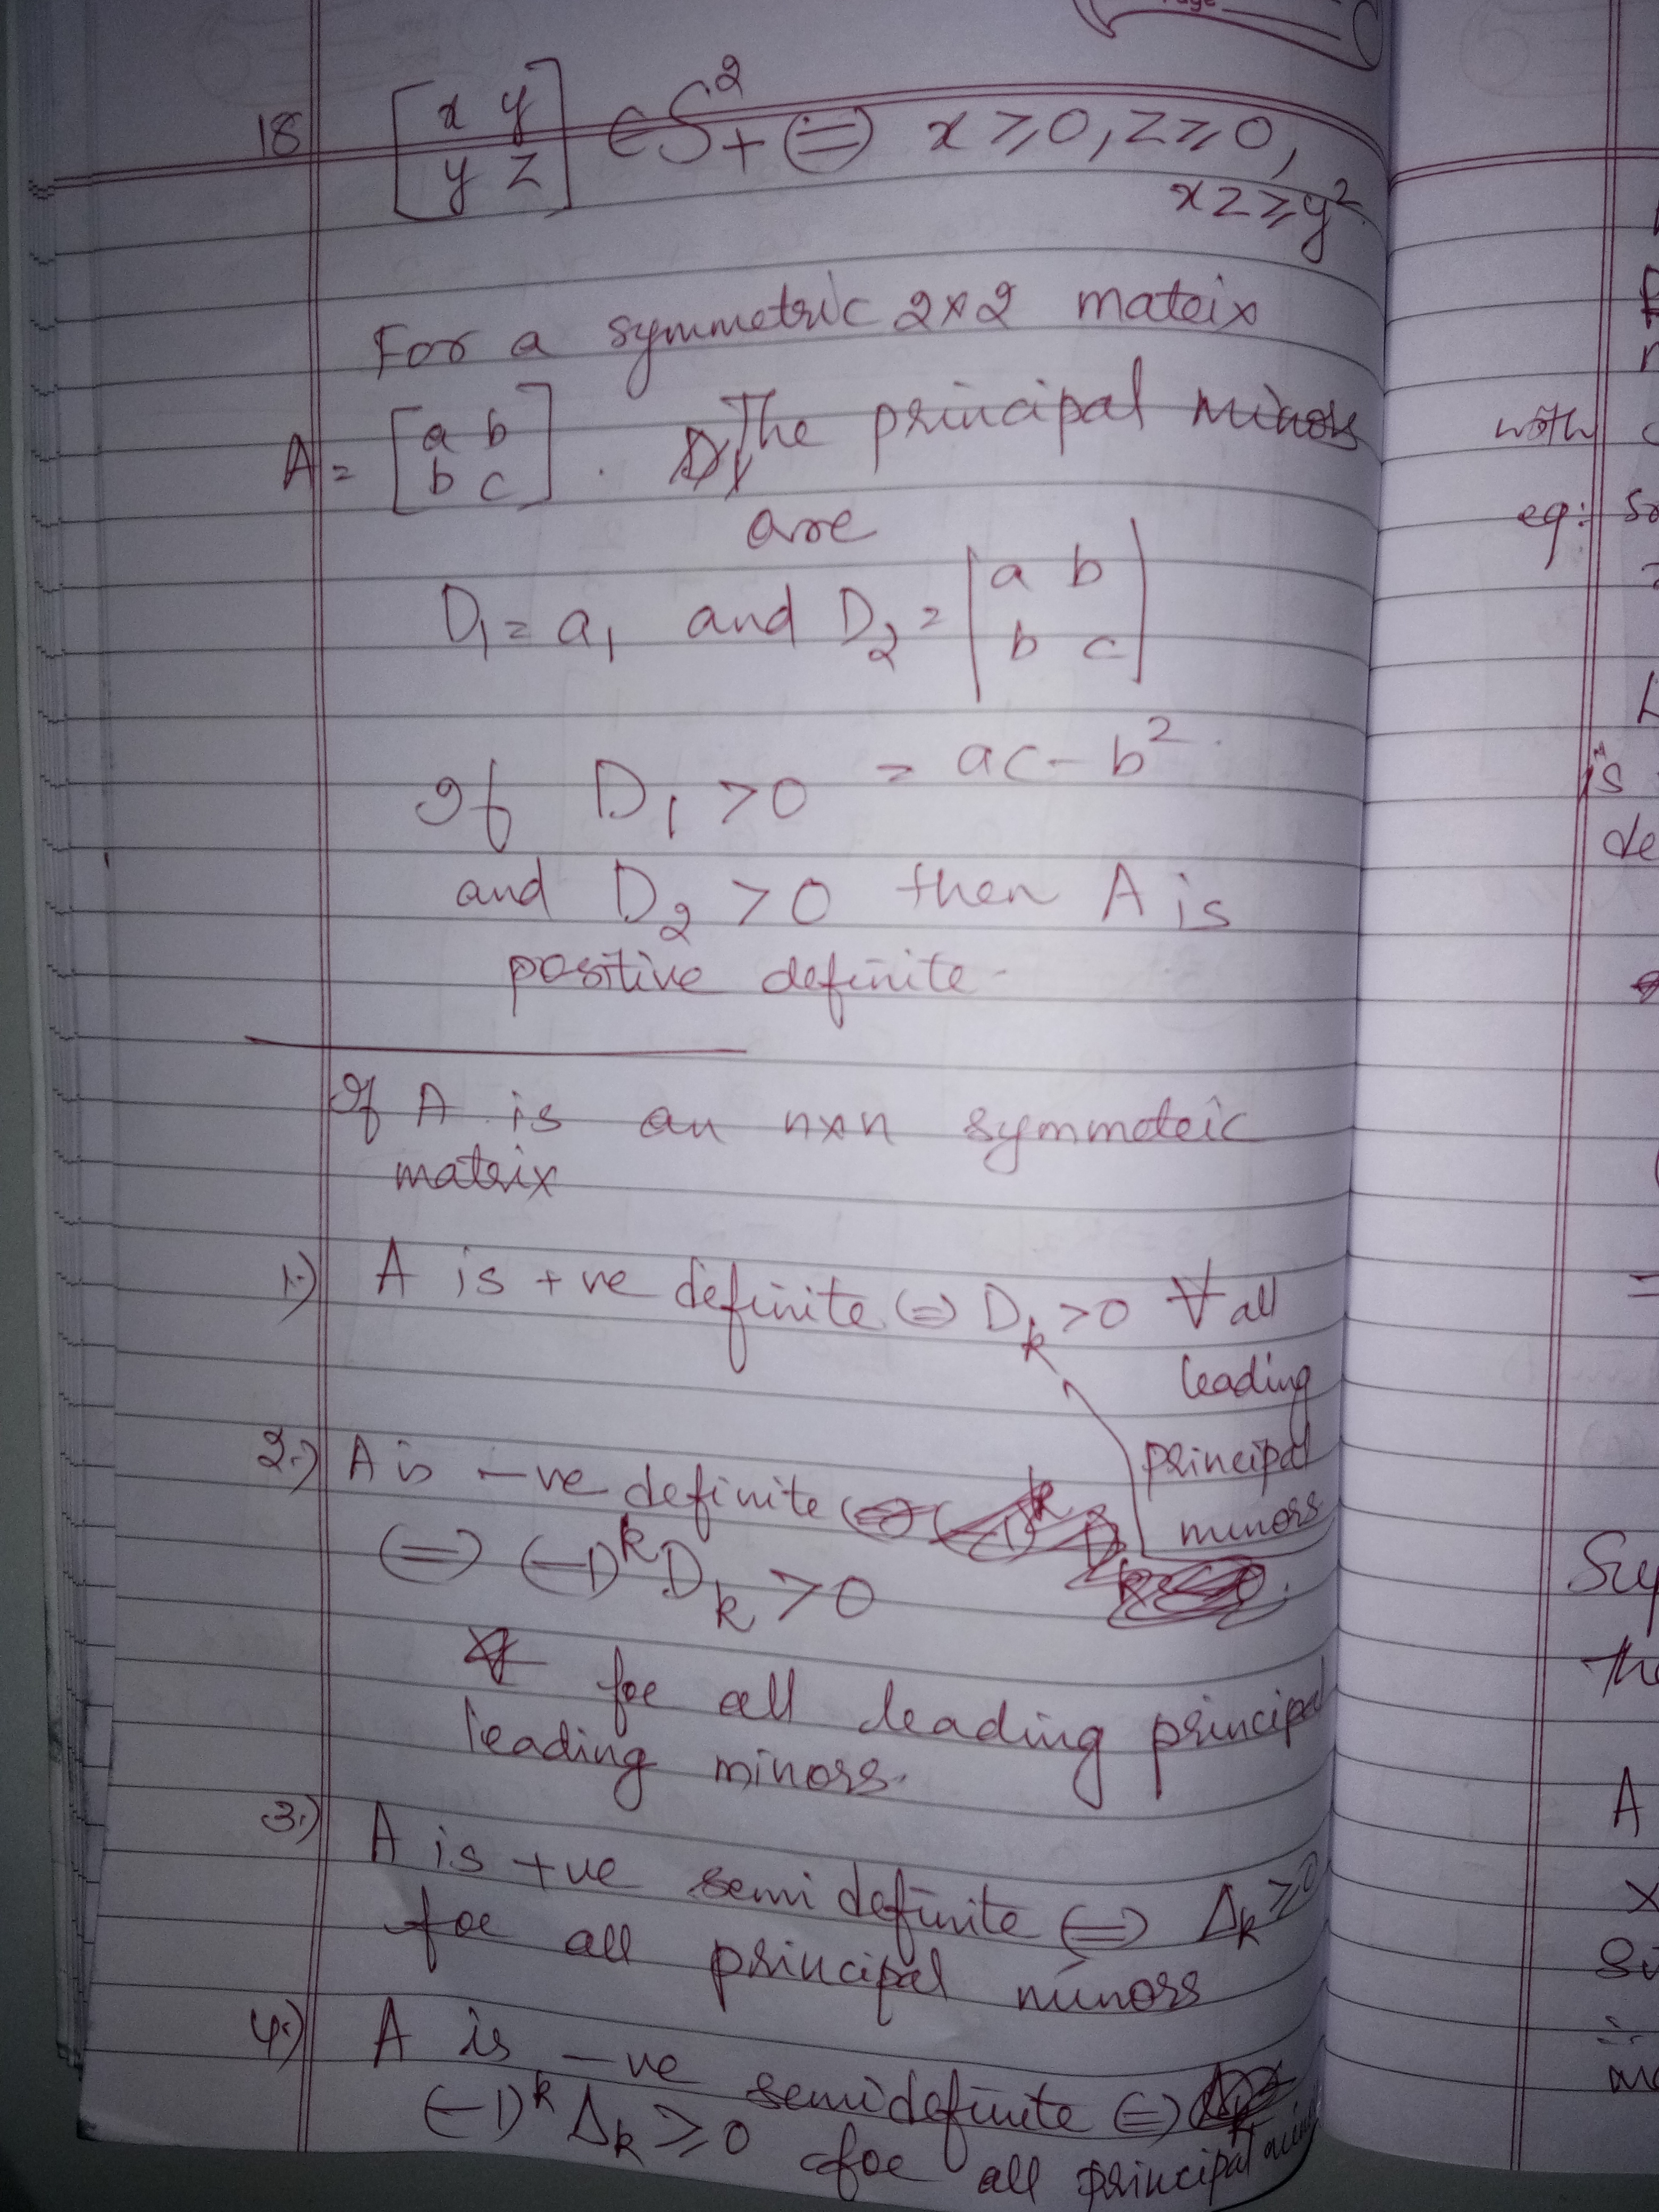 Page
18 [x y
y z] ∈ S²₊ ⇔ x ≥ 0, z ≥ 0,
xz ≥ y²
For a symmetric 2x2 matrix
A = [a b
b c] . The principal minors
are
D₁ = a, and D₂ = |a b
b c|
= ac - b².
If D₁ > 0
and D₂ > 0 then A is
positive definite.
If A is an nxn symmetric
matrix
1.) A is +ve definite ⇔ D_k > 0 ∀ all
leading
principal
minors
2.) A is -ve definite
⇔ (-1)^k D_k > 0
for all leading principal
leading minors.
3.) A is +ve semidefinite ⇔ Δ_k ≥ 0
for all principal minors
4.) A is -ve semidefinite ⇔
(-1)^k Δ_k ≥ 0 for all principal
with
eg:
is
de
A